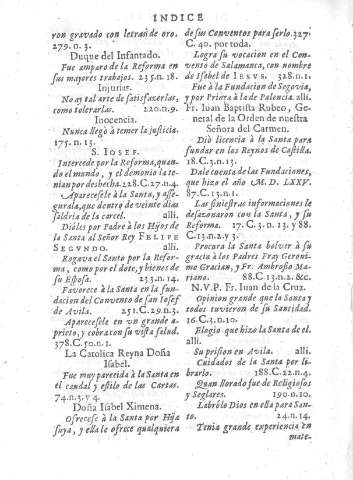 INDICE
ron gravado con letras de oro.
279. n. 3.
Duque del Infantado.
Fue amparo de la Reforma en
sus mayores trabajos. 235. n. 18.
Injurias.
No ay tal arte de satisfazerlas,
como tolerarlas. 220. n. 9.
Inocencia.
Nunca llegò à temer la justicia.
175. n. 13.
S. IOSEF.
Intercede por la Reforma, quan-
do el mundo, y el demonio la te-
nian por deshecha. 228. C. 27. n. 4.
Aparecesele à la Santa, y asse-
gurala, que dentro de veinte dias
saldria de la carcel. alli.
Diòles por Padre à los Hijos de
la Santa al Señor Rey FELIPE
SEGVNDO. alli.
Rogava el Santo por la Refor-
ma, como por el dote, y bienes de
su Esposa. 233. n. 14.
Favorece à la Santa en la fun-
dacion del Convento de san Iosef
de Avila. 251. C. 29. n. 3.
Aparecesele en vn grande a-
prieto, y cobra con su vista salud.
378. C. 50. n. 1.
La Catolica Reyna Doña
Isabel.
Fue muy parecida à la Santa en
el caudal y estilo de las Cartas.
74. n. 3. y 4.
Doña Isabel Ximena.
Ofrecese à la Santa por Hija
suya, y ella le ofrece qualquiera
de sus Conventos para serlo. 327.
C. 40. por toda.
Logra su vocacion en el Con-
vento de Salamanca, con nombre
de Isabel de IESVS. 328. n. 1.
Fue à la Fundacion de Segovia,
y por Priora à la de Palencia. alli.
Fr. Ioan Baptista Rubeo, Ge-
neral de la Orden de nuestra
Señora del Carmen.
Diò licencia à la Santa para
fundar en los Reynos de Castilla.
18. C. 3. n. 13.
Dale cuenta de las Fundaciones,
que hizo el año M. D. LXXV.
87. C. 13. n. 1.
Las siniestras informaciones le
desazonaron con la Santa, y su
Reforma. 17. C. 3. n. 13. y 88.
C. 13. n. 2. y 3.
Procura la Santa bolver à su
gracia à los Padres Fray Geroni-
mo Gracian, y Fr. Ambrosio Ma-
riano. 88. C. 13. n. 2. &c.
N. V. P. Fr. Iuan de la Cruz.
Opinion grande que la Santa y
todos tuvieron de su Santidad.
16. C. 3. n. 10.
Elogio que hizo la Santa de el.
alli.
Su prision en Avila. alli.
Cuidados de la Santa por li-
brarlo. 188. C. 22. n. 4.
Quan llorado fue de Religiosos
y Seglares. 190. n. 10.
Labròlo Dios en ella para San-
to. 24. n. 14.
Tenia grande experiencia en
mate-